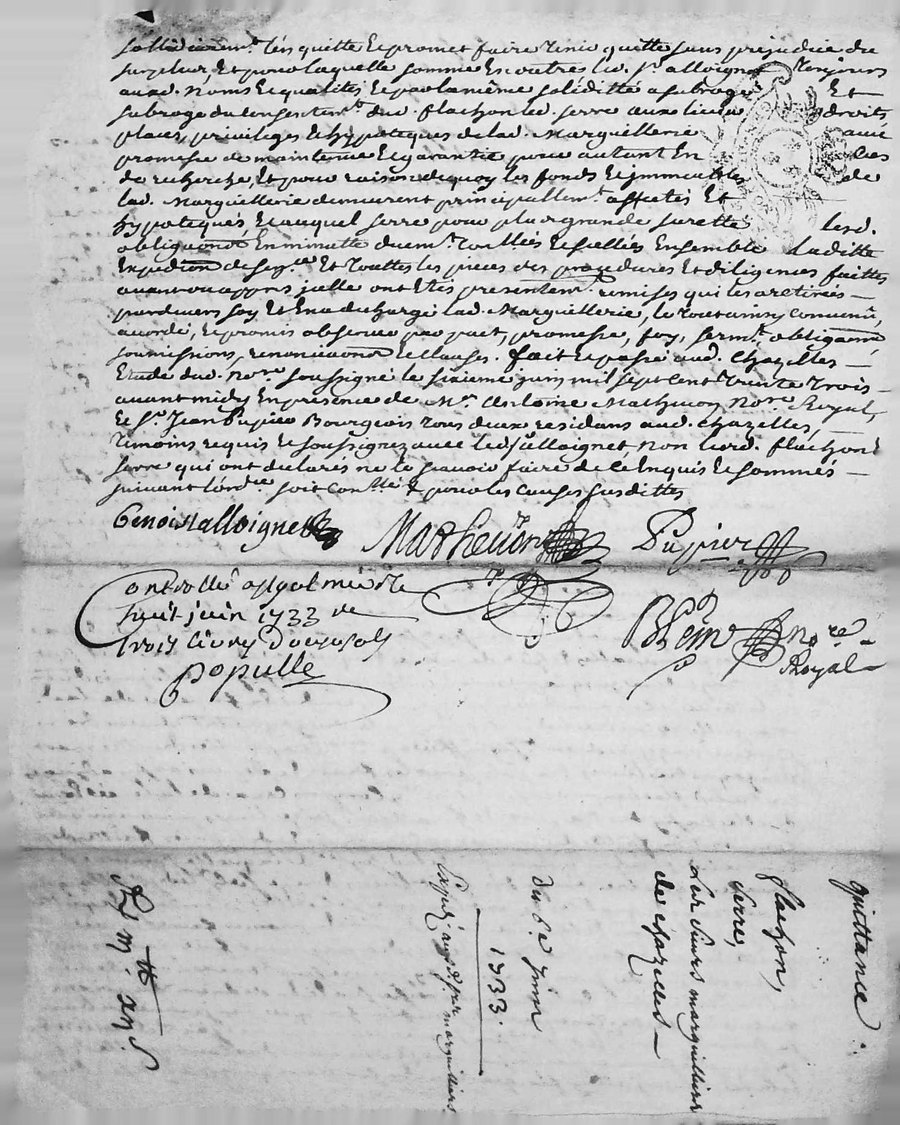 sollidairemt. l'en quitte Et promet faire tenir quitte sans prejudice du
surpleus, Et pour laquelle somme Es couttes led. sr. alloignet toujours
auxd. noms Et qualités Et par la même soliditté a subrogé Et
subroge du consentemt. dud. flachon led. serre aux lieux droits
places, privileges Et hypoteques de lad. Marguillerie avec
promesse de maintenue Et garantie pour autant En cas
de recherche, Et pour raison de quoy les fonds Et immeubles de
lad. Marguillerie demeurent principallemt. affectés Et
hypotequés, Et auquel serre pour plus grande surette lesd.
obligations En minutte duemt. collées Et scellées Ensemble laditte
Expedition Et touttes les pieces des procedures Et diligences faittes
avant ou appres jcelle ont Etés presentemt. remises qui les a retirées
pardevers soy Et En a dechargé lad. Marguillerie, le tout ainsy convenu,
accordé, Et promis observer par pact, promesse, foy, sermt. obligaons
soumissions, renonciaons Et clauses. fait Et passé aud. Chazelles
Etude dud. nore. soussigné le sixieme juin mil sept cent trente trois
avant midy En presence de Me. Antoine Mathevon nore. Royal,
Et sr. Jean Pupier Bourgeois tous deux residans aud. chazelles,
temoins requis Et soussignez avec led. sr. alloignet, non lesd. flachon Et
serre qui ont declarés ne le scavoir faire de ce Enquis Et sommés
suivant l'ordce. soit conllé. pour les causes susdittes
Benoist alloignet Mathevon Pupier
Controllé a st galmier le
huit juin 1733 Rr
trois livres douze sols
Populle
Bhenr nore. Royal
quittance
flachon,
serre,
Les sieurs marguilliers
de chazelles
du 6.e Juin
1733.
Exped. aux d. srs marguilliers